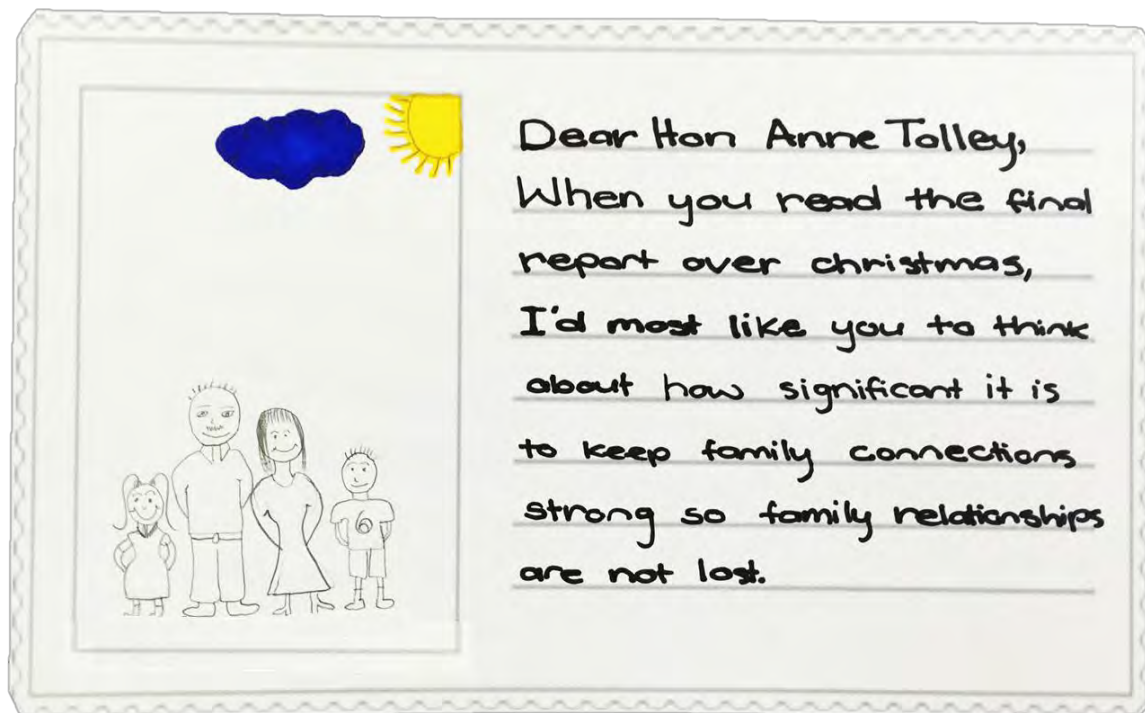 Dear Hon Anne Tolley,
When you read the final
report over christmas,
I'd most like you to think
about how significant it is
to keep family connections
strong so family relationships
are not lost.
6